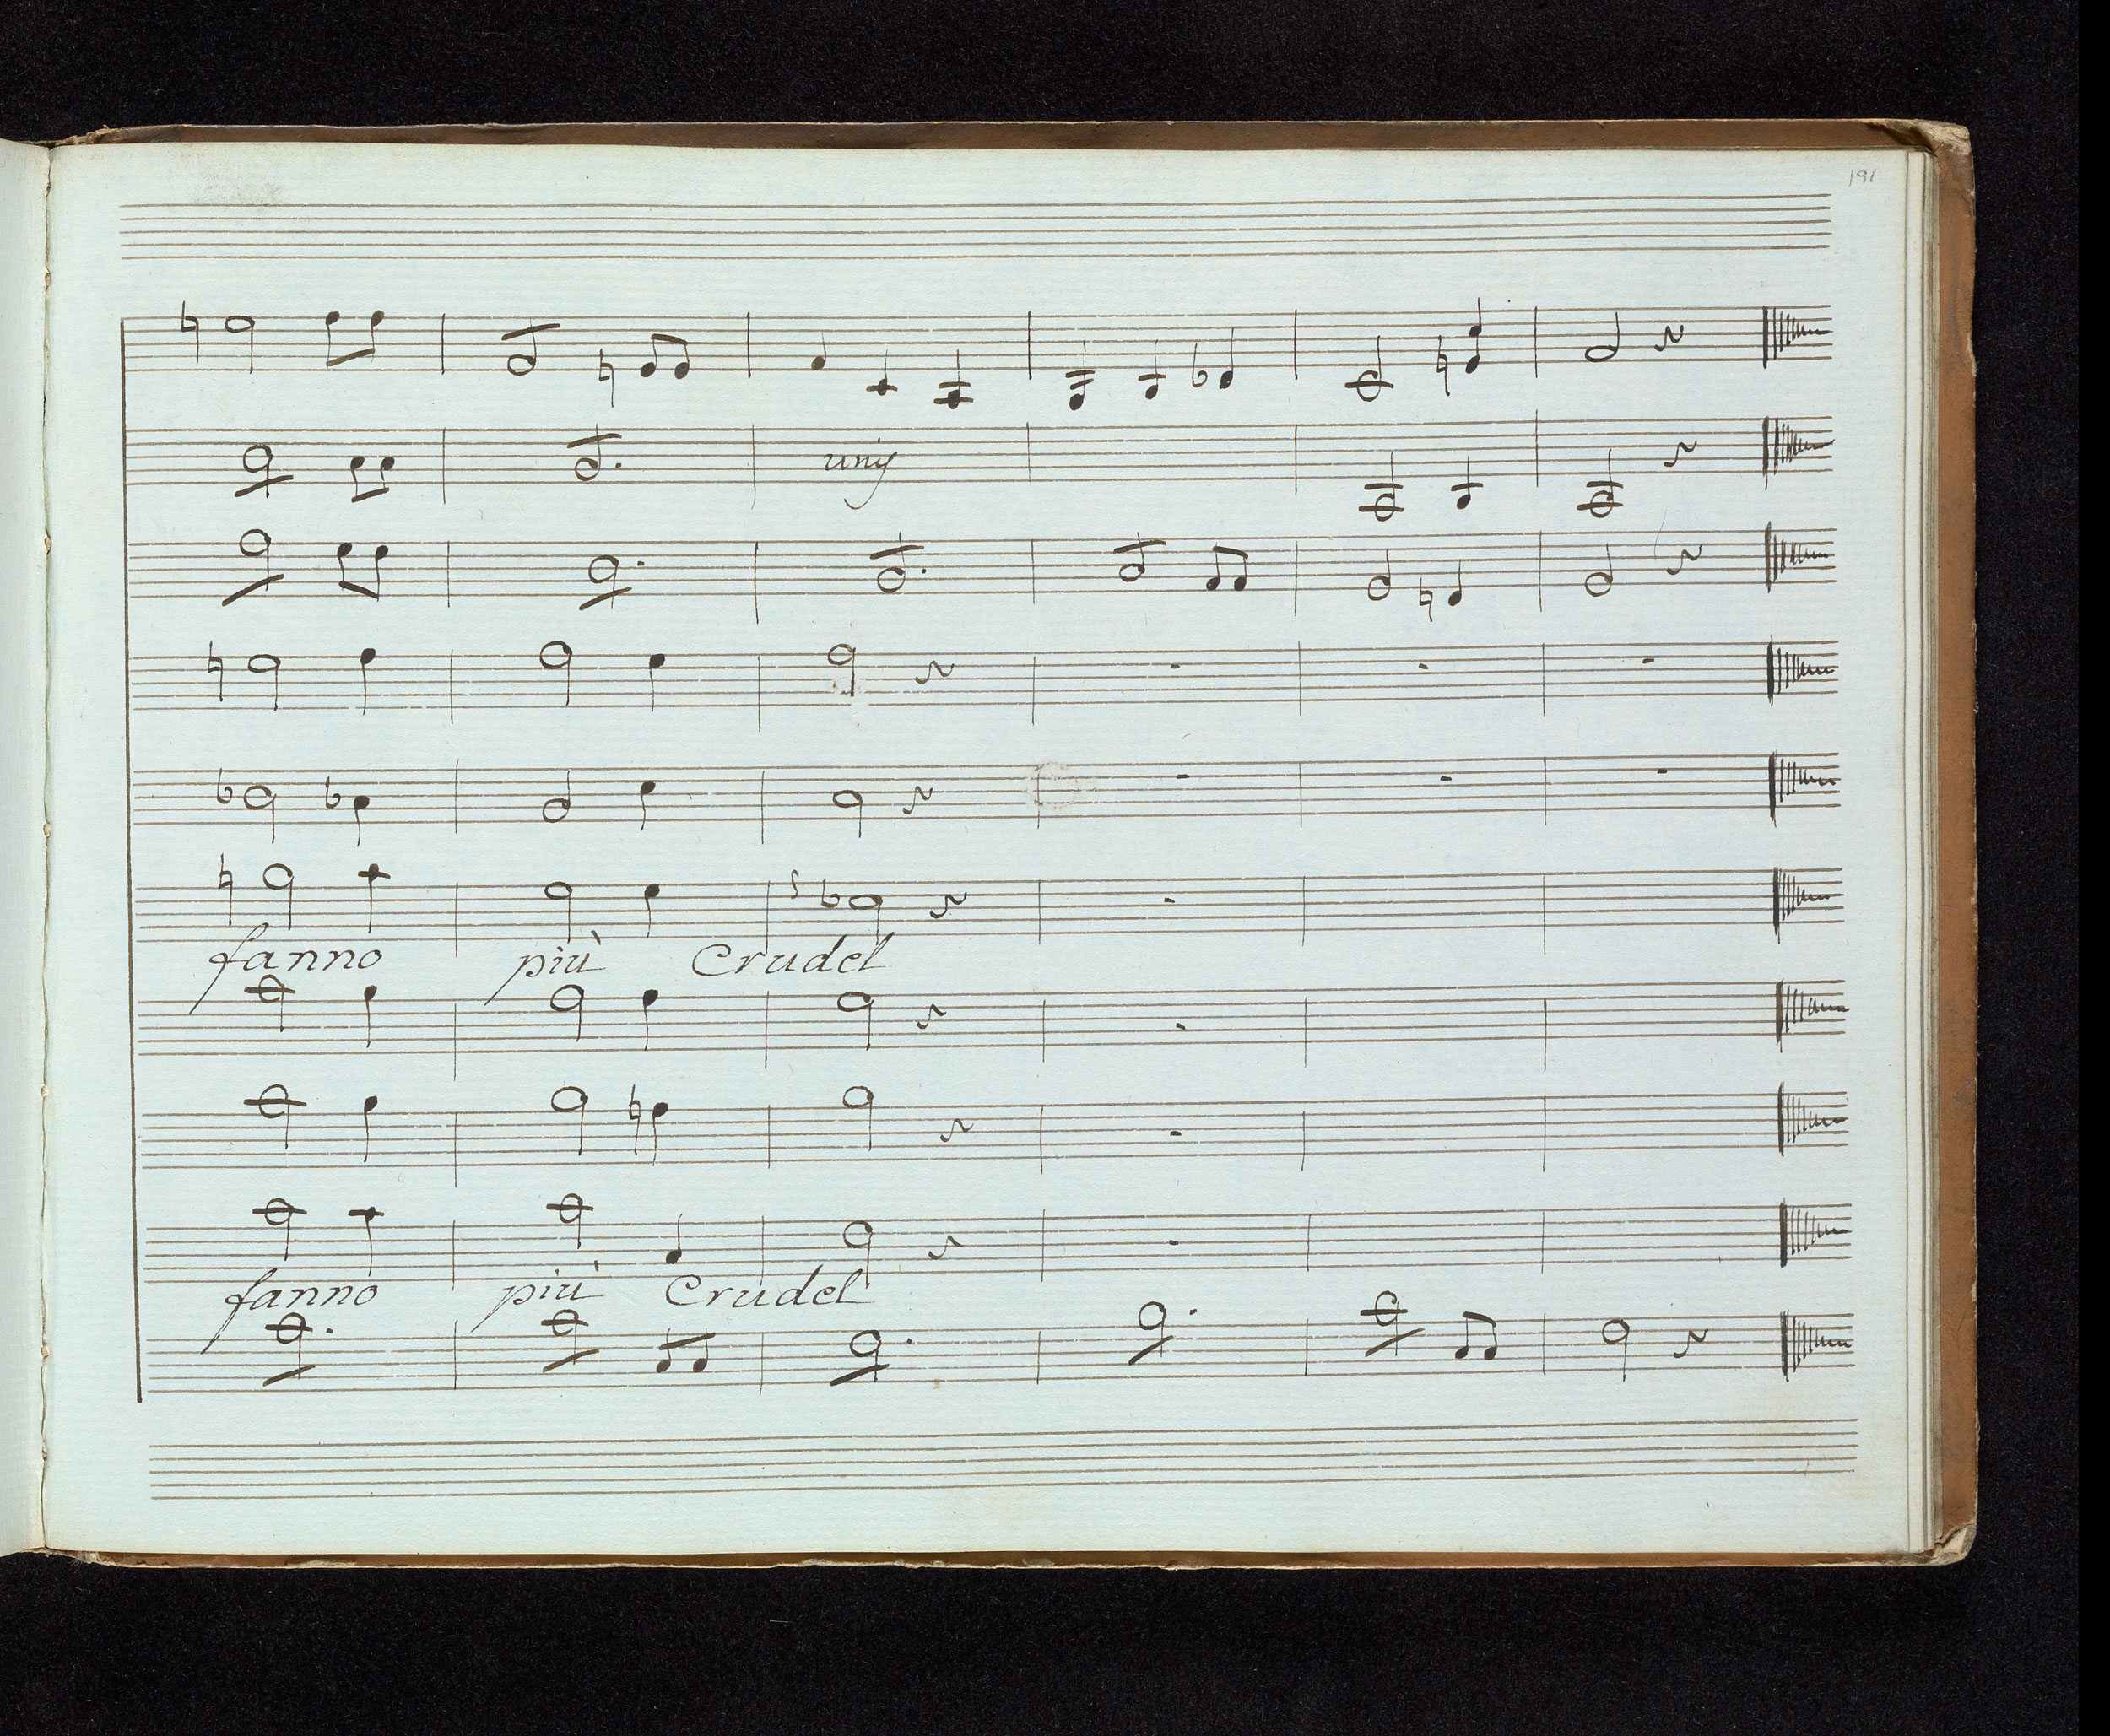 191
unis
fanno più Crudel
fanno più Crudel